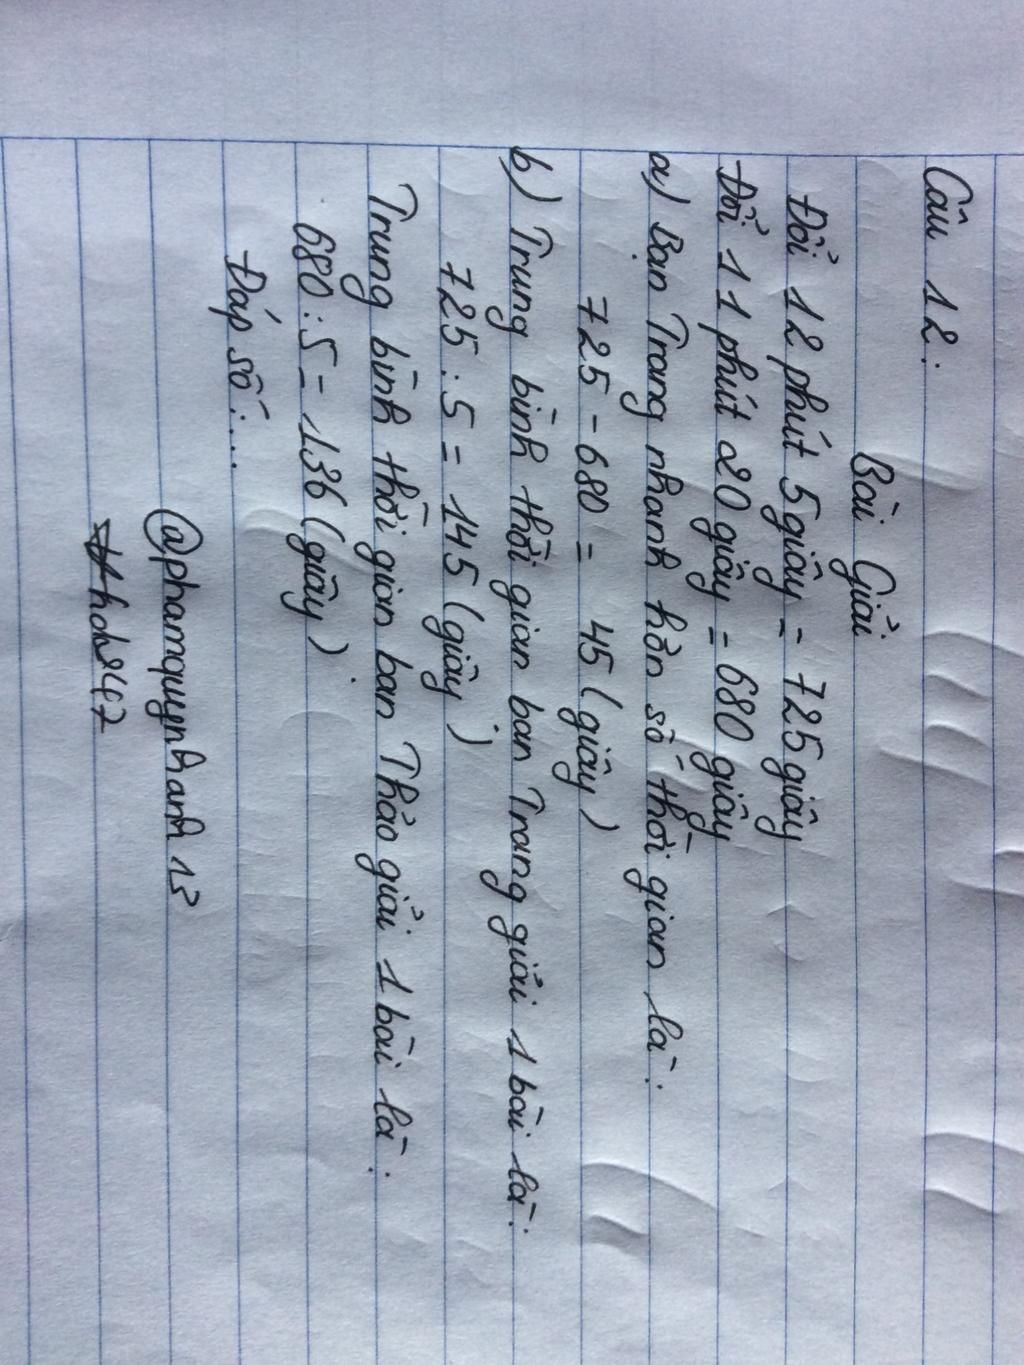 Câu 12:
Bài Giải
Đổi 12 phút 5 giây = 725 giây
Đổi 11 phút 20 giây = 680 giây
a) Bạn Trang nhanh hơn số thời gian là:
725 - 680 = 45 (giây)
b) Trung bình thời gian bạn Trang giải 1 bài là:
725 : 5 = 145 (giây)
Trung bình thời gian bạn Thảo giải 1 bài là:
680 : 5 = 136 (giây)
Đáp số: ...
@phamquynhanh13